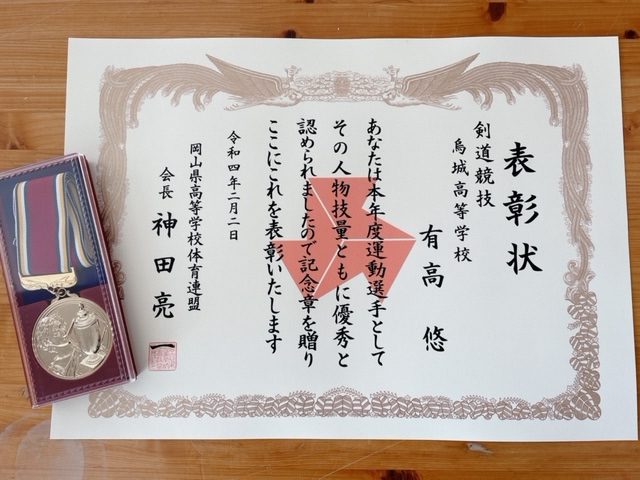 表彰状
剣道競技
烏城高等学校
有高 悠
あなたは本年度運動選手として
その人物技量ともに優秀と
認められましたので記念章を贈り
ここにこれを表彰いたします
令和四年二月二日
岡山県高等学校体育連盟
会長 神田亮一